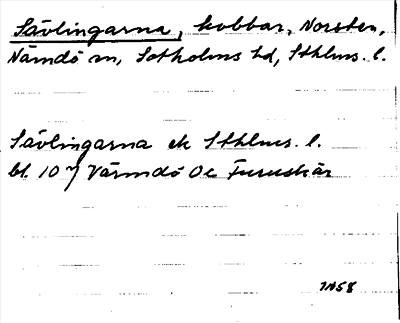 Sävlingarna, kobbar, Norsten,
Nämdö sn, Sotholms hd, Sthlms. l.
Sävlingarna ek Sthlms. l.
bl. 107 Värmdö Oe Furuskär
1958